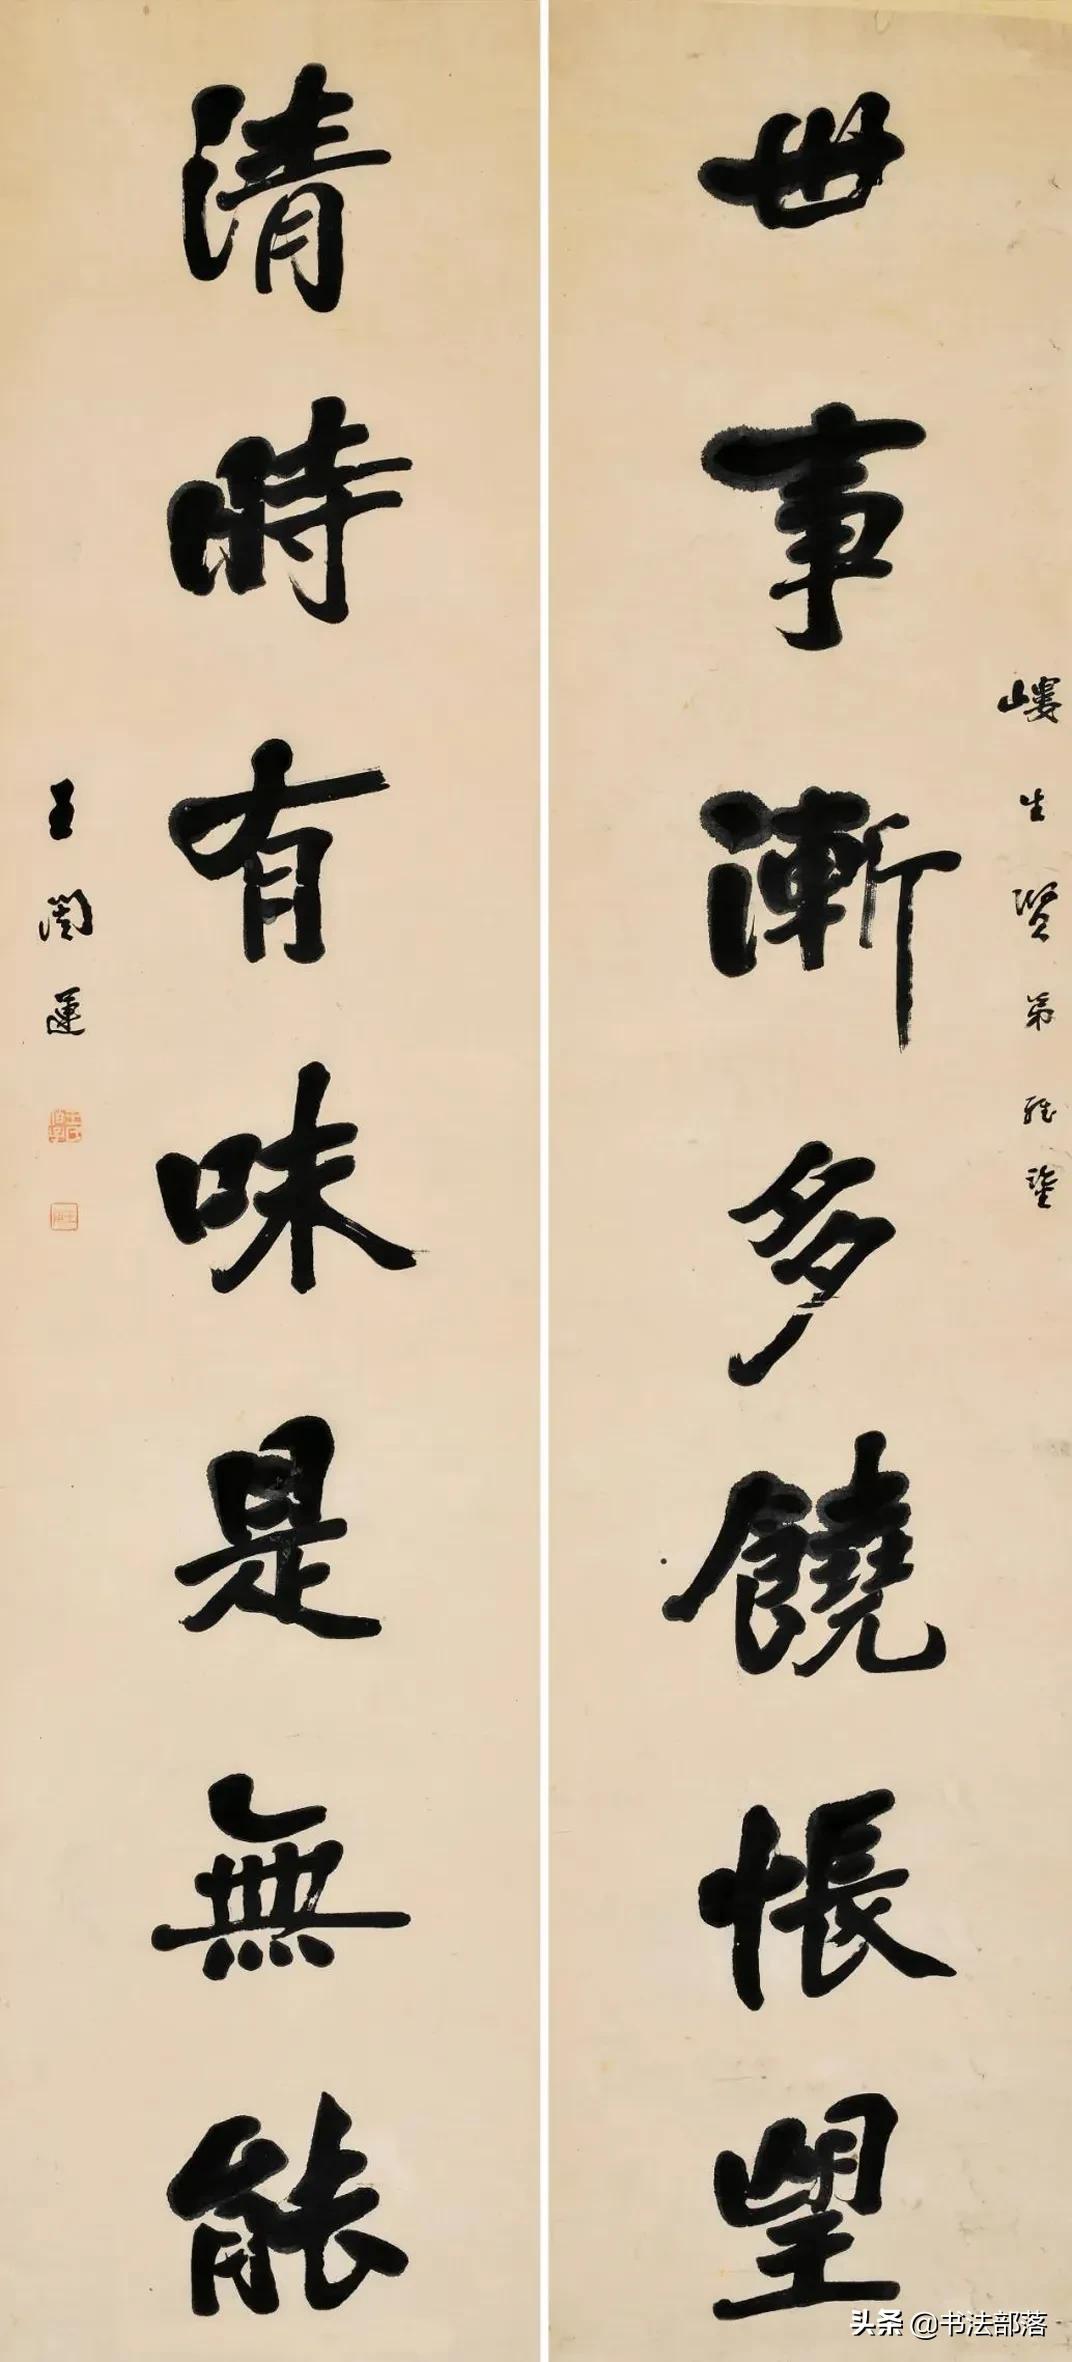 嶁生賢弟雅鑒
世事漸多饒悵望
清時有味是無能
王闓運
头条 @书法部落